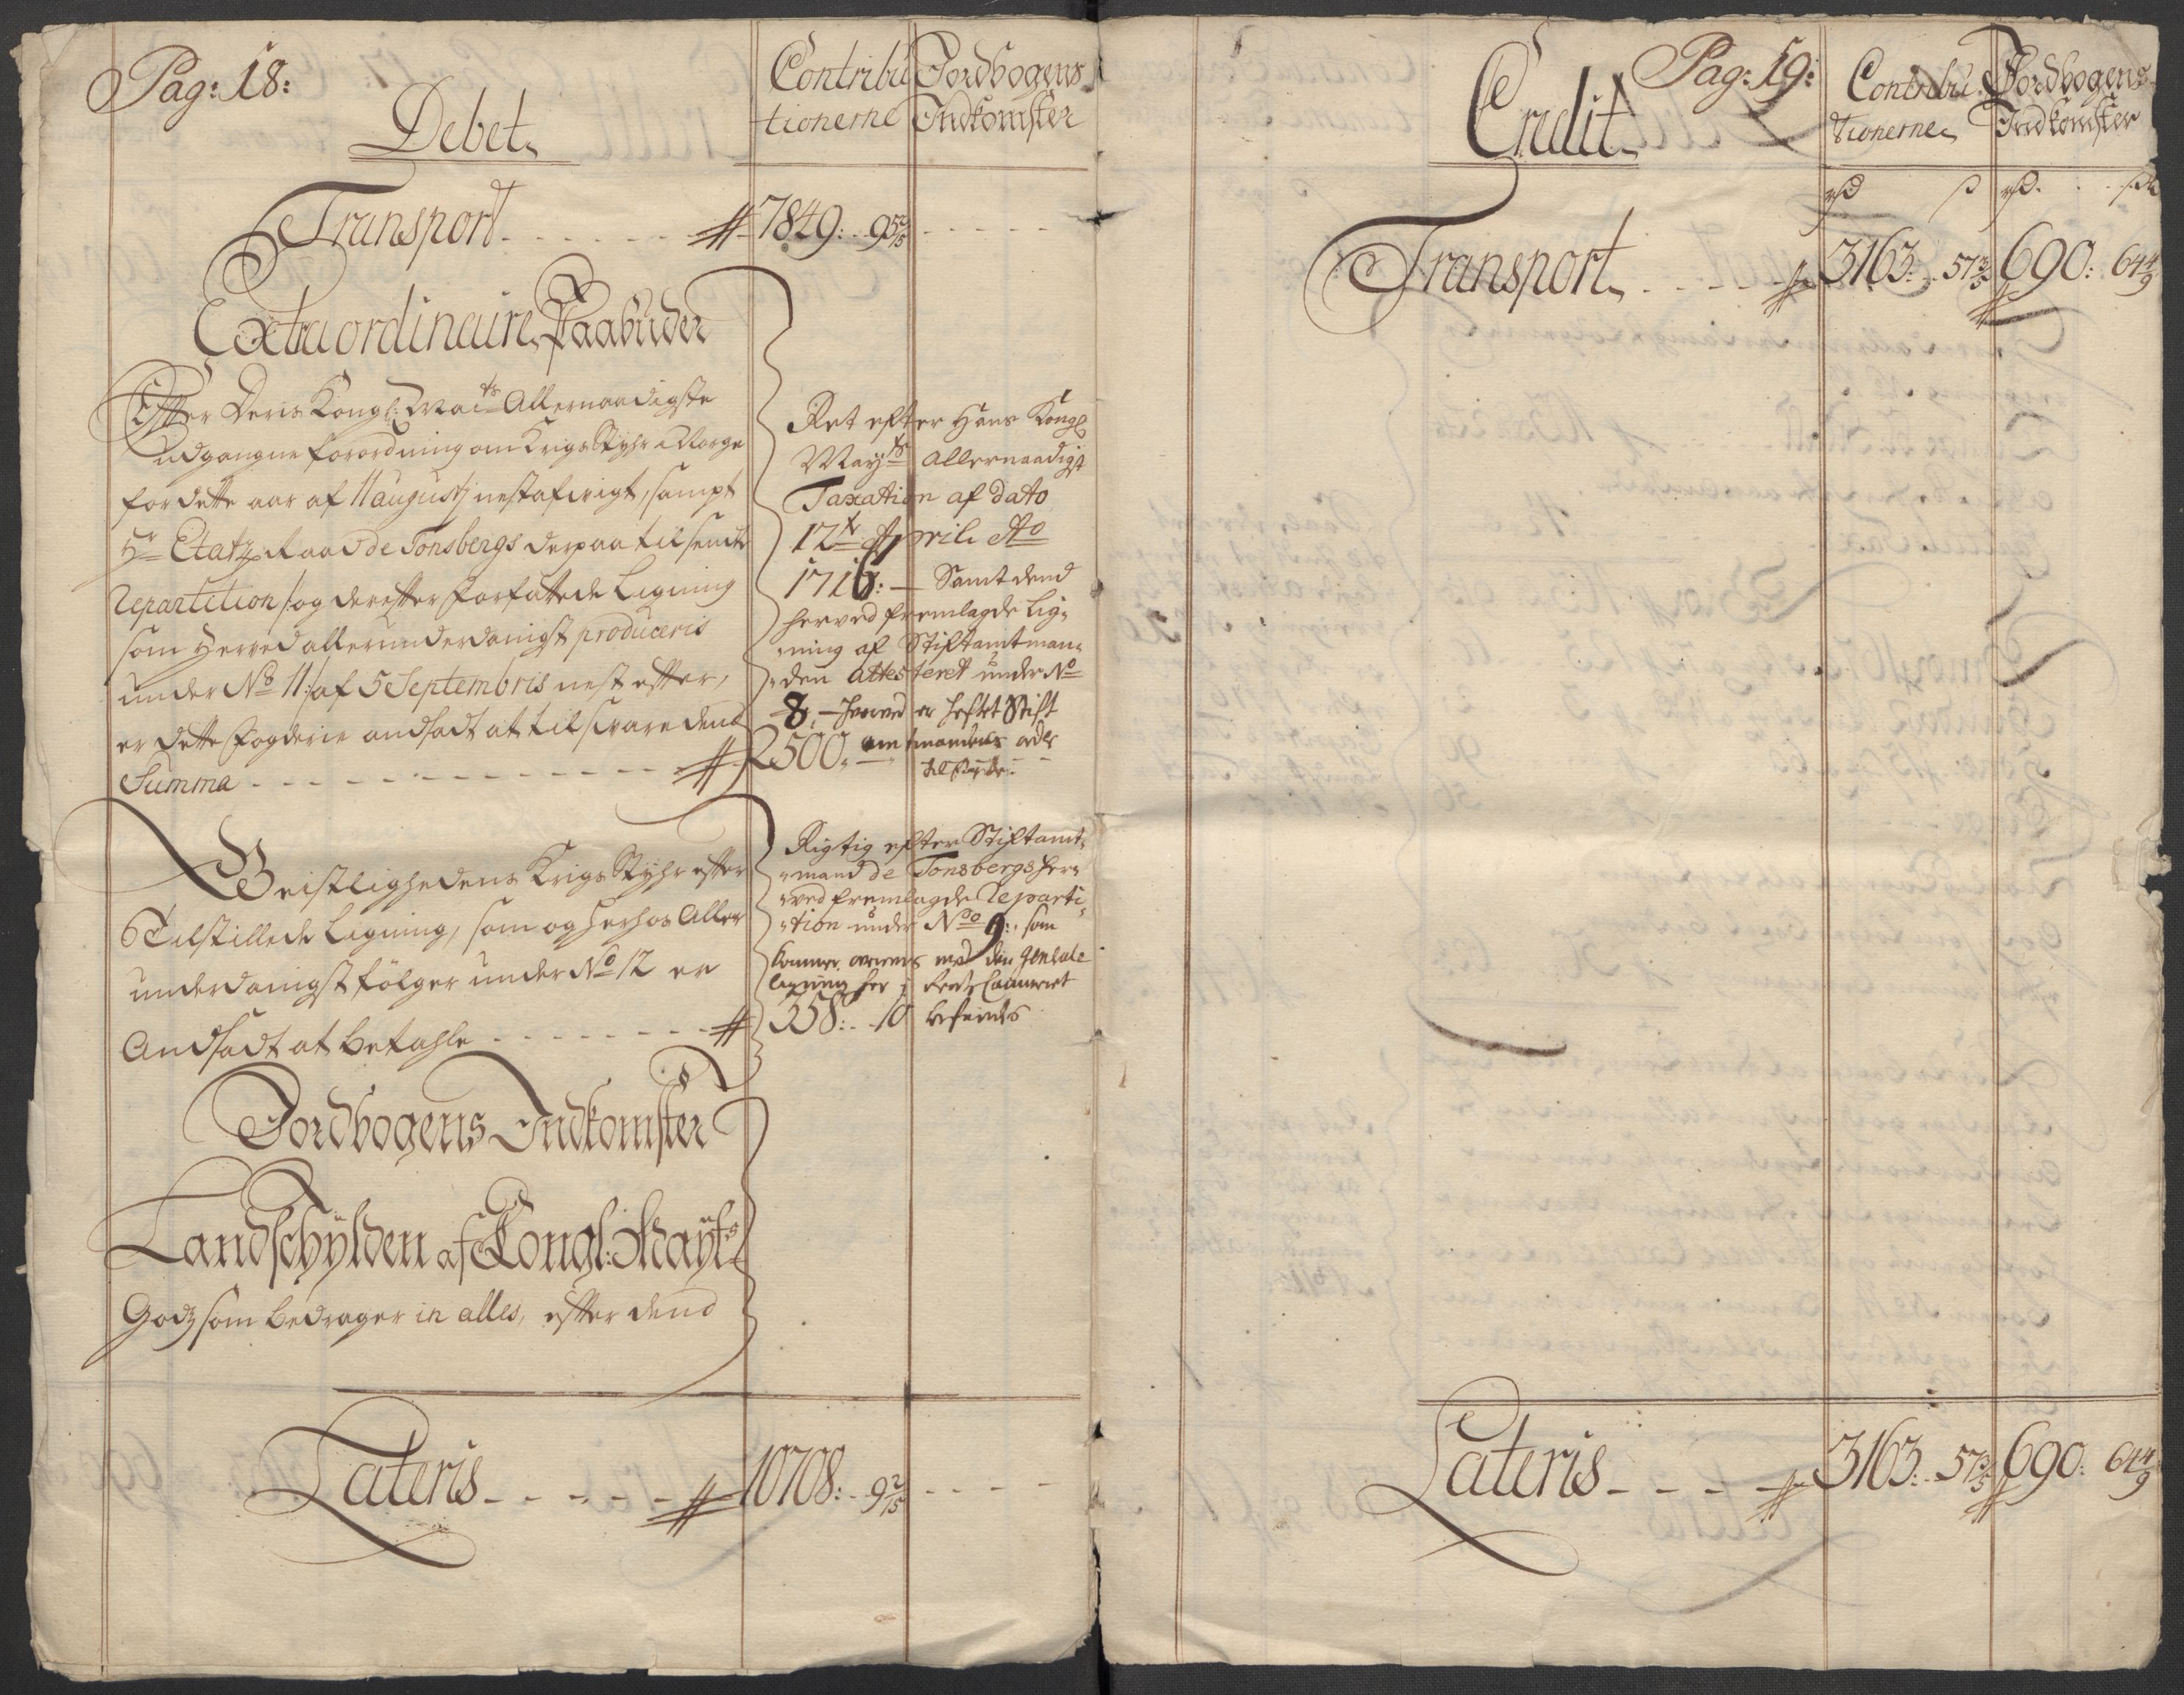 Pag: 18:
Debet
Contribu
tionerne
Jordbogens
Indkomster
Transport - - - - - - 7849: 95 2/15 - - - - -
Extraordinaire Paabuder
Efter Deris Kongl: Mai ts Allernaadigste
udgangne forordning om Krigs Styhr i Norge
for dette aar af 11 augustj nestafvigt, sampt
Hr Etatz Raad de Tonsbergs derpaa tilsendte
Repartition og derefter forfattede Ligning
som herved allerunderdanigst produceris
under No 11: af 5 Septembris nest efter,
er dette fogderie andsadt at tilsvare dend
Summa - - - - - - - - - - - 2500. — „
Ret efter Hans Kongl
May ts allernaadigst
Taxation af dato
12 t Aprili Ao
1716: — Samt dend
herved fremlagde Lig=
=ning af Stiftamtman=
=den attesteret under No
8, — hvorved er heftet Stift
amtmandens ordre
Geistlighedens Krigs Styhr efter
Tilstillede Ligning, som og herhos Aller
underdanigst følger under No 12 er
Andsadt at betahle - - - - - - - 358: - 10
Rigtig efter Stiftamt=
=mand de Tonsbergs her=
=ved fremlagde Reparti=
=tion under No 9: som
kommer overens med den Generale
ligning her i Rentz Cammeret
befindes
Jordbogens Indkomster
Landschylden af Kongl: Mayts
Godz som bedrager in alles, efter dend
Lateris - - - - - - 10708: - 9 2/15 - - - -
Pag: 19:
Credit
Contribu
tionerne
Jordbogens
Indkomster
rd ß rd. ß
Transport - - - - - 3163: 57 3/5 690: 64 4/9
Lateris - - - - 3163: 57 3/5 690: 64 4/9